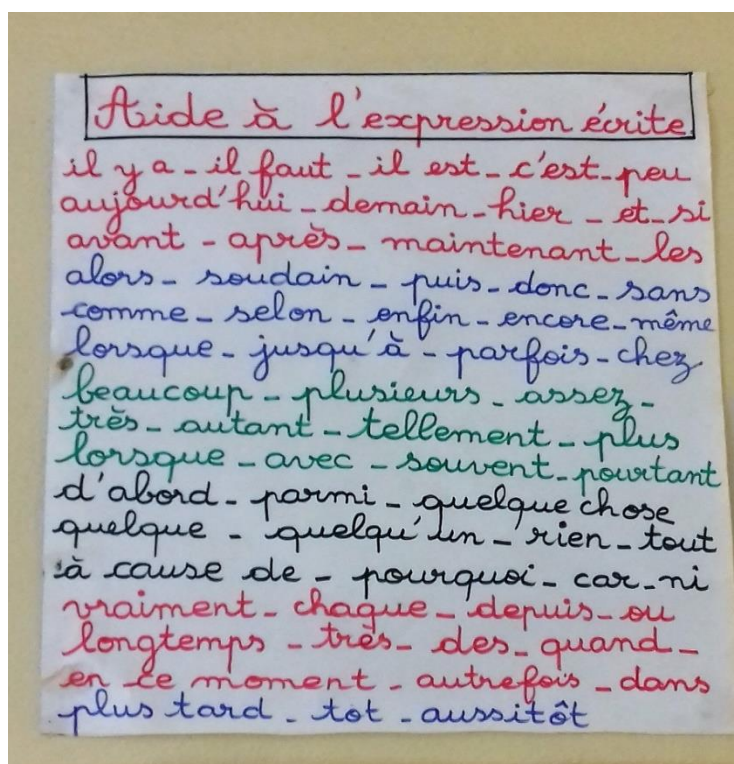 Aide à l'expression écrite
il y a - il faut - il est - c'est - peu
aujourd'hui - demain - hier - et - si
avant - après - maintenant - les
alors - soudain - puis - donc - sans
comme - selon - enfin - encore - même
lorsque - jusqu'à - parfois - chez
beaucoup - plusieurs - assez -
très - autant - tellement - plus
lorsque - avec - souvent - pourtant
d'abord - parmi - quelque chose
quelque - quelqu'un - rien - tout
à cause de - pourquoi - car - ni
vraiment - chaque - depuis - ou
longtemps - très - des - quand -
en ce moment - autrefois - dans
plus tard - tot - aussitôt